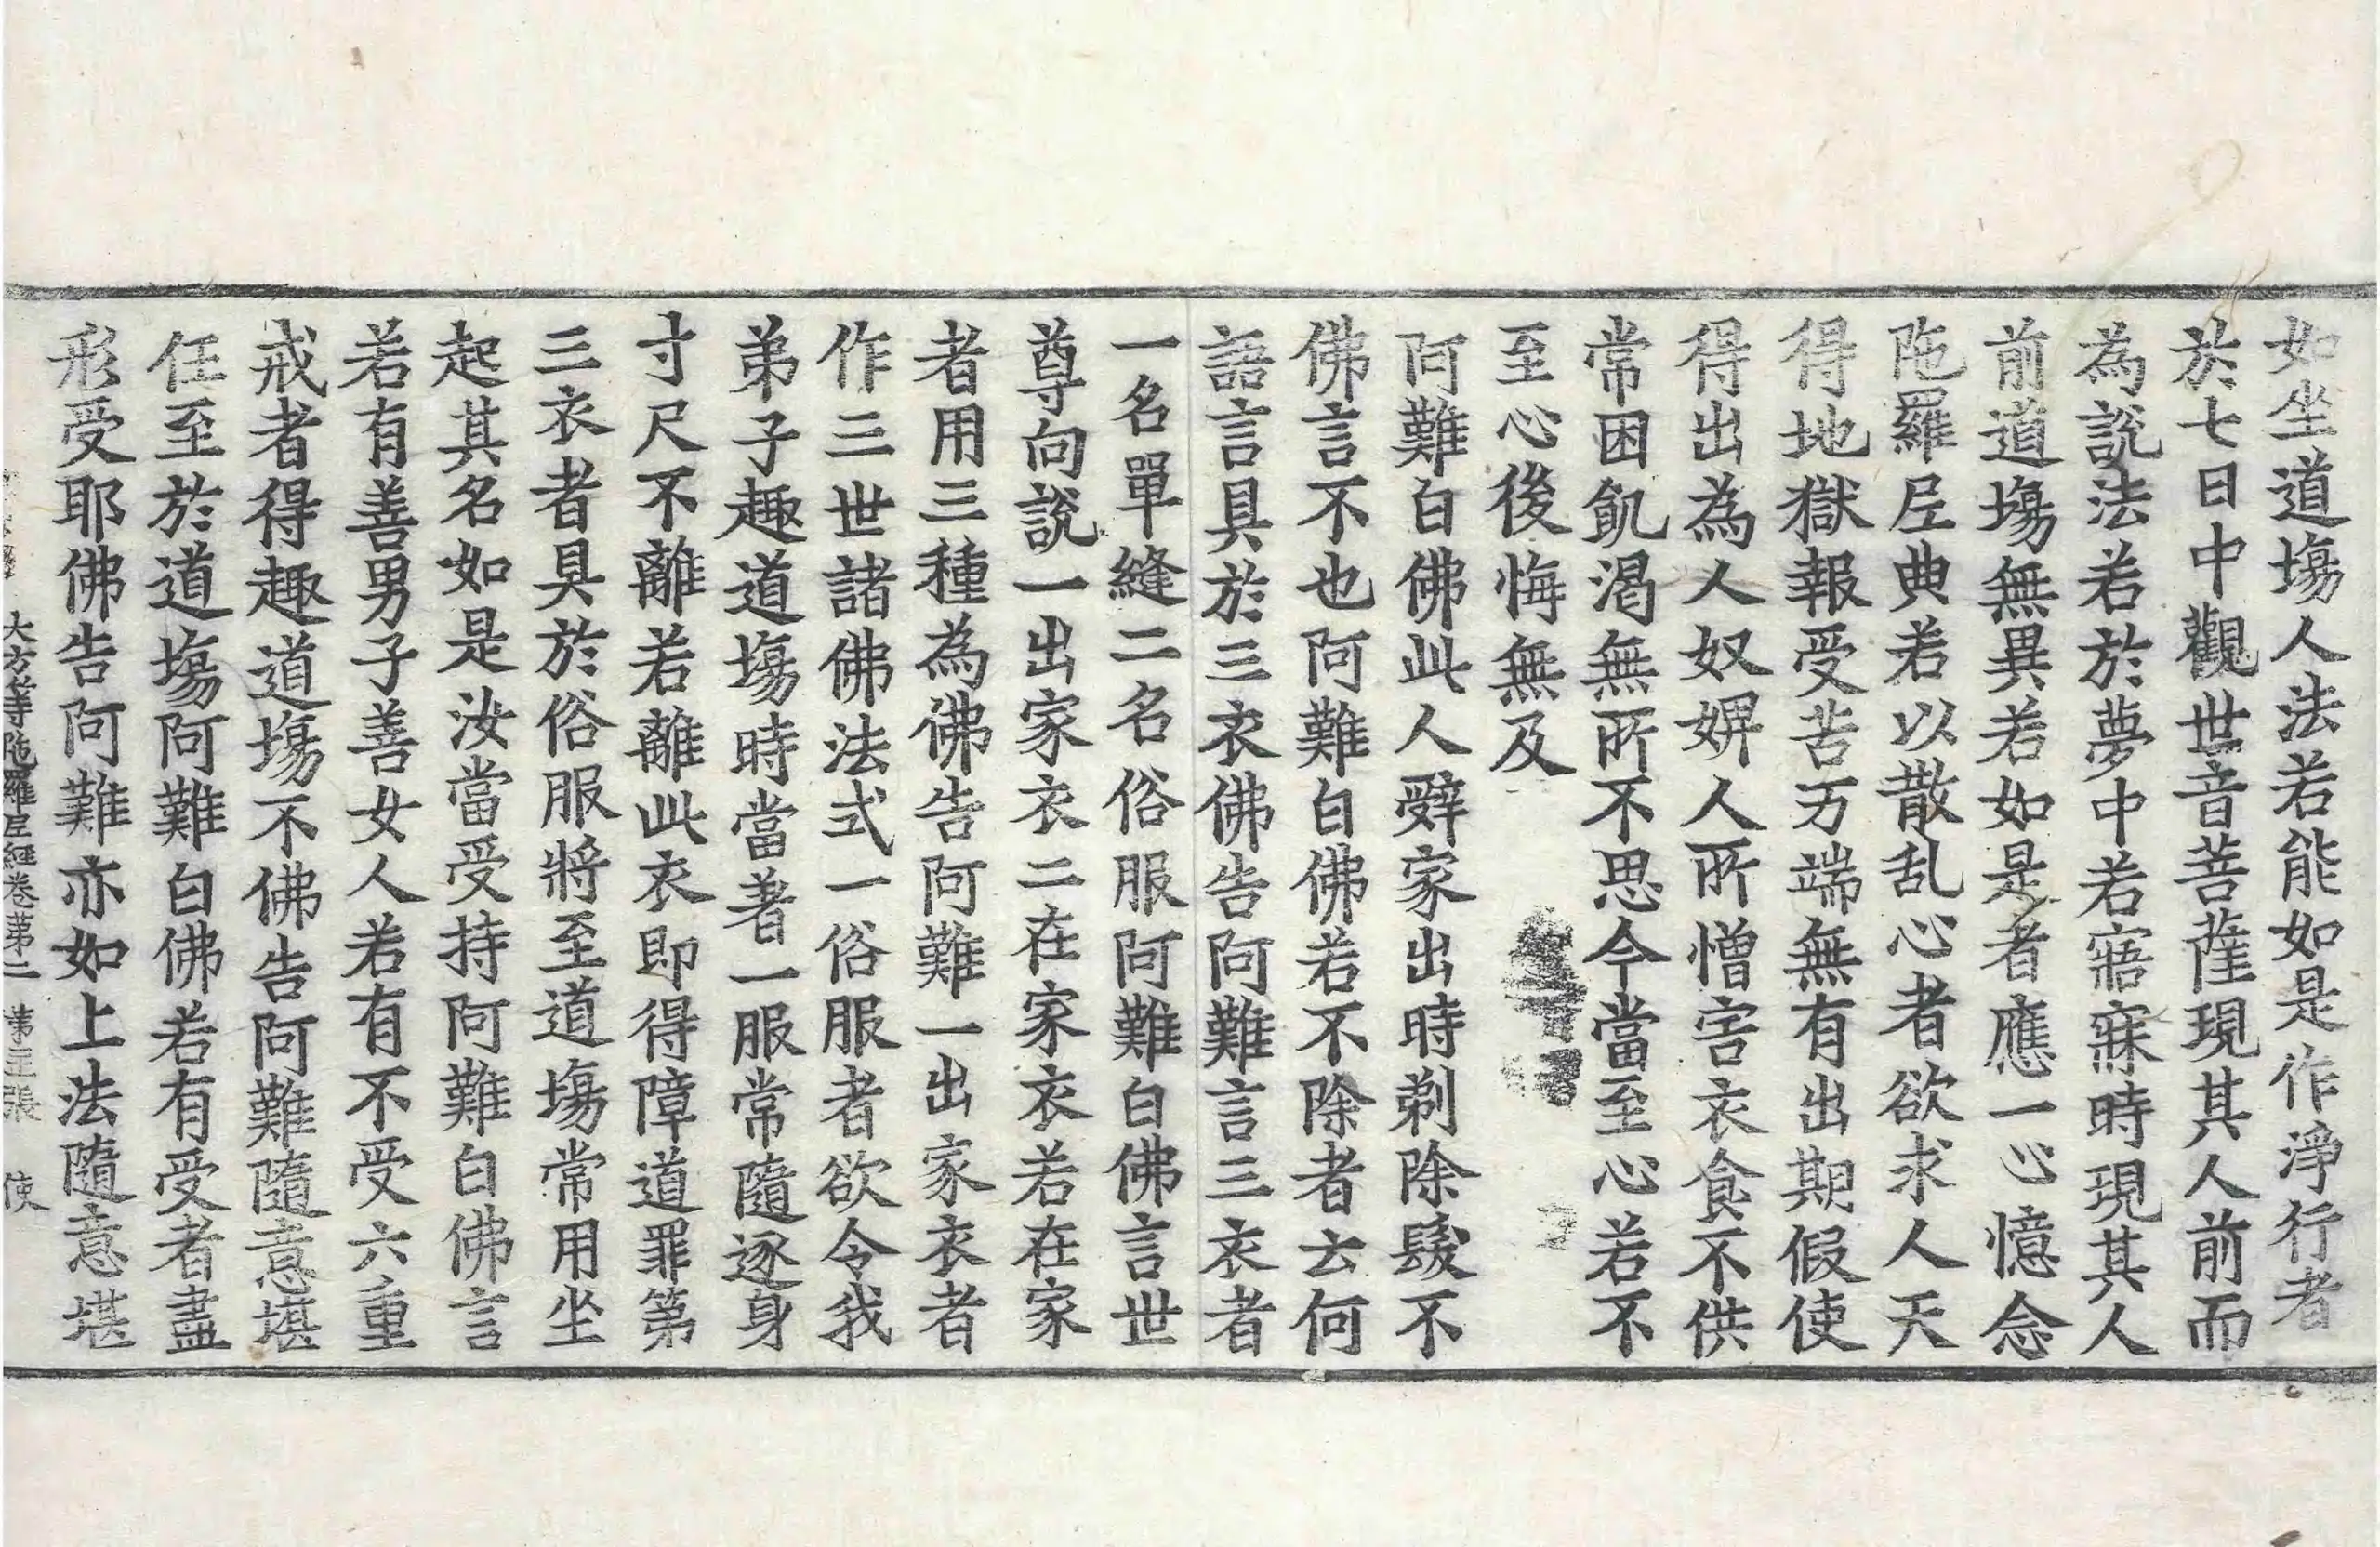 如坐道塲人法若能如是作淨行者
於七日中觀世音菩薩現其人前而
為說法若於夢中若寤寐時現其人
前道塲無異若如是者應一心憶念
陁羅𡰱典若以散乱心者欲求人天
得地獄報受苦万端無有出期假使
得出為人奴婢人所憎害衣食不供
常困飢渇無所不思今當至心若不
至心後悔無及
阿難白佛此人辤家出時剃除髮不
佛言不也阿難白佛若不除者云何
語言具於三衣佛告阿難言三衣者
一名單縫二名俗服阿難白佛言世
尊向說一出家衣二在家衣若在家
者用三種為佛告阿難一出家衣者
作三世諸佛法式一俗服者欲令我
弟子趣道塲時當著一服常隨逐身
寸尺不離若離此衣即得障道罪第
三衣者具於俗服將至道塲常用坐
起其名如是汝當受持阿難白佛言
若有善男子善女人若有不受六重
戒者得趣道塲不佛告阿難隨意堪
任至於道塲阿難白佛若有受者盡
形受耶佛告阿難亦如上法隨意堪
大方等陁羅𡰱經卷第二 第三張 使